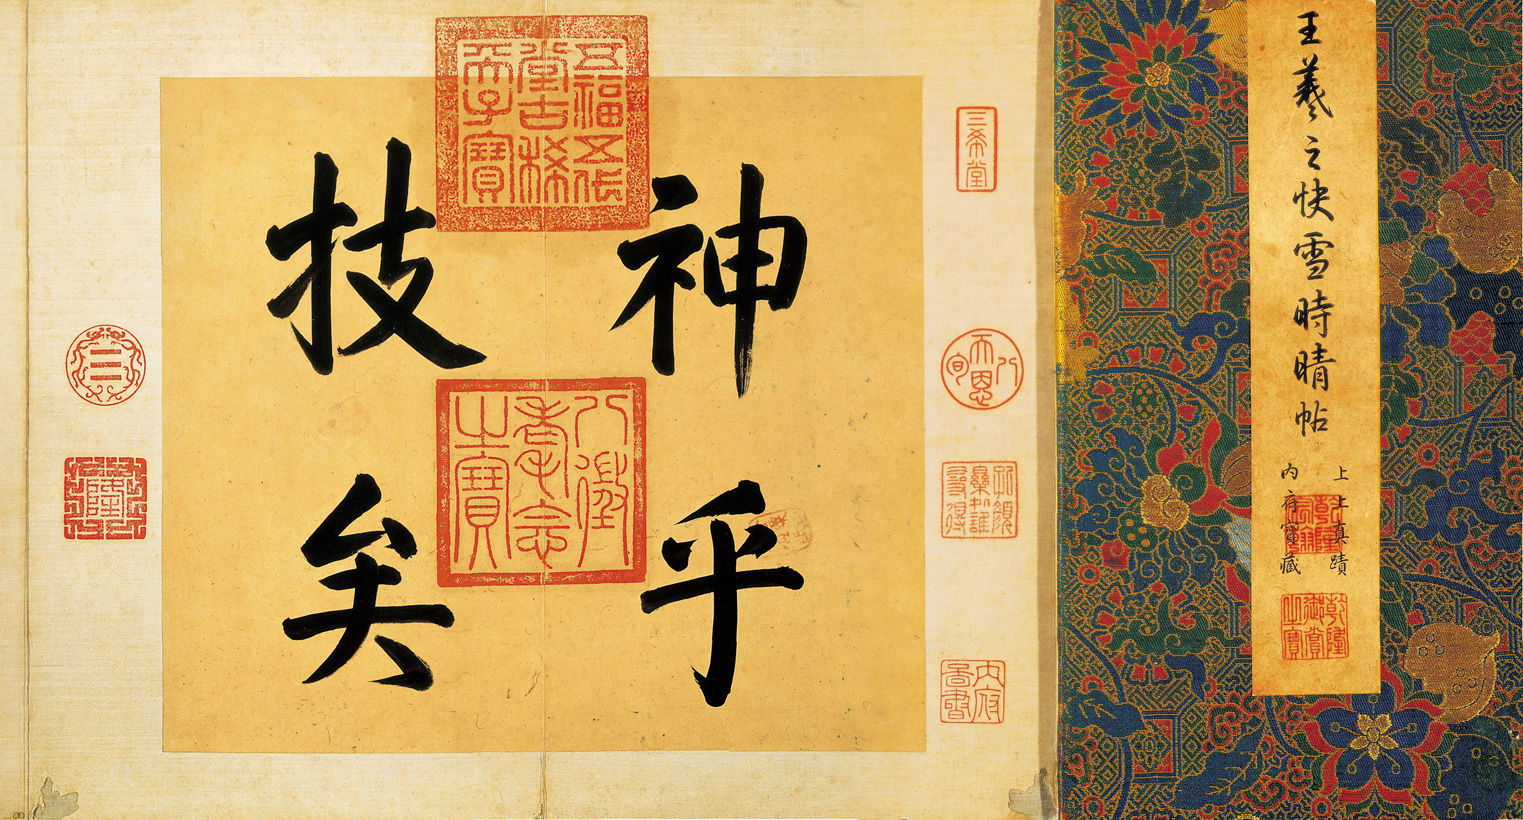 王羲之快雪時晴帖
上上真蹟
內府寶藏
乾隆
御賞
之寶
三希堂
天恩八旬
內府
圖書
神乎
技矣
五福五代
堂古稀
天子寶
八徵
耄念
之寶
隆